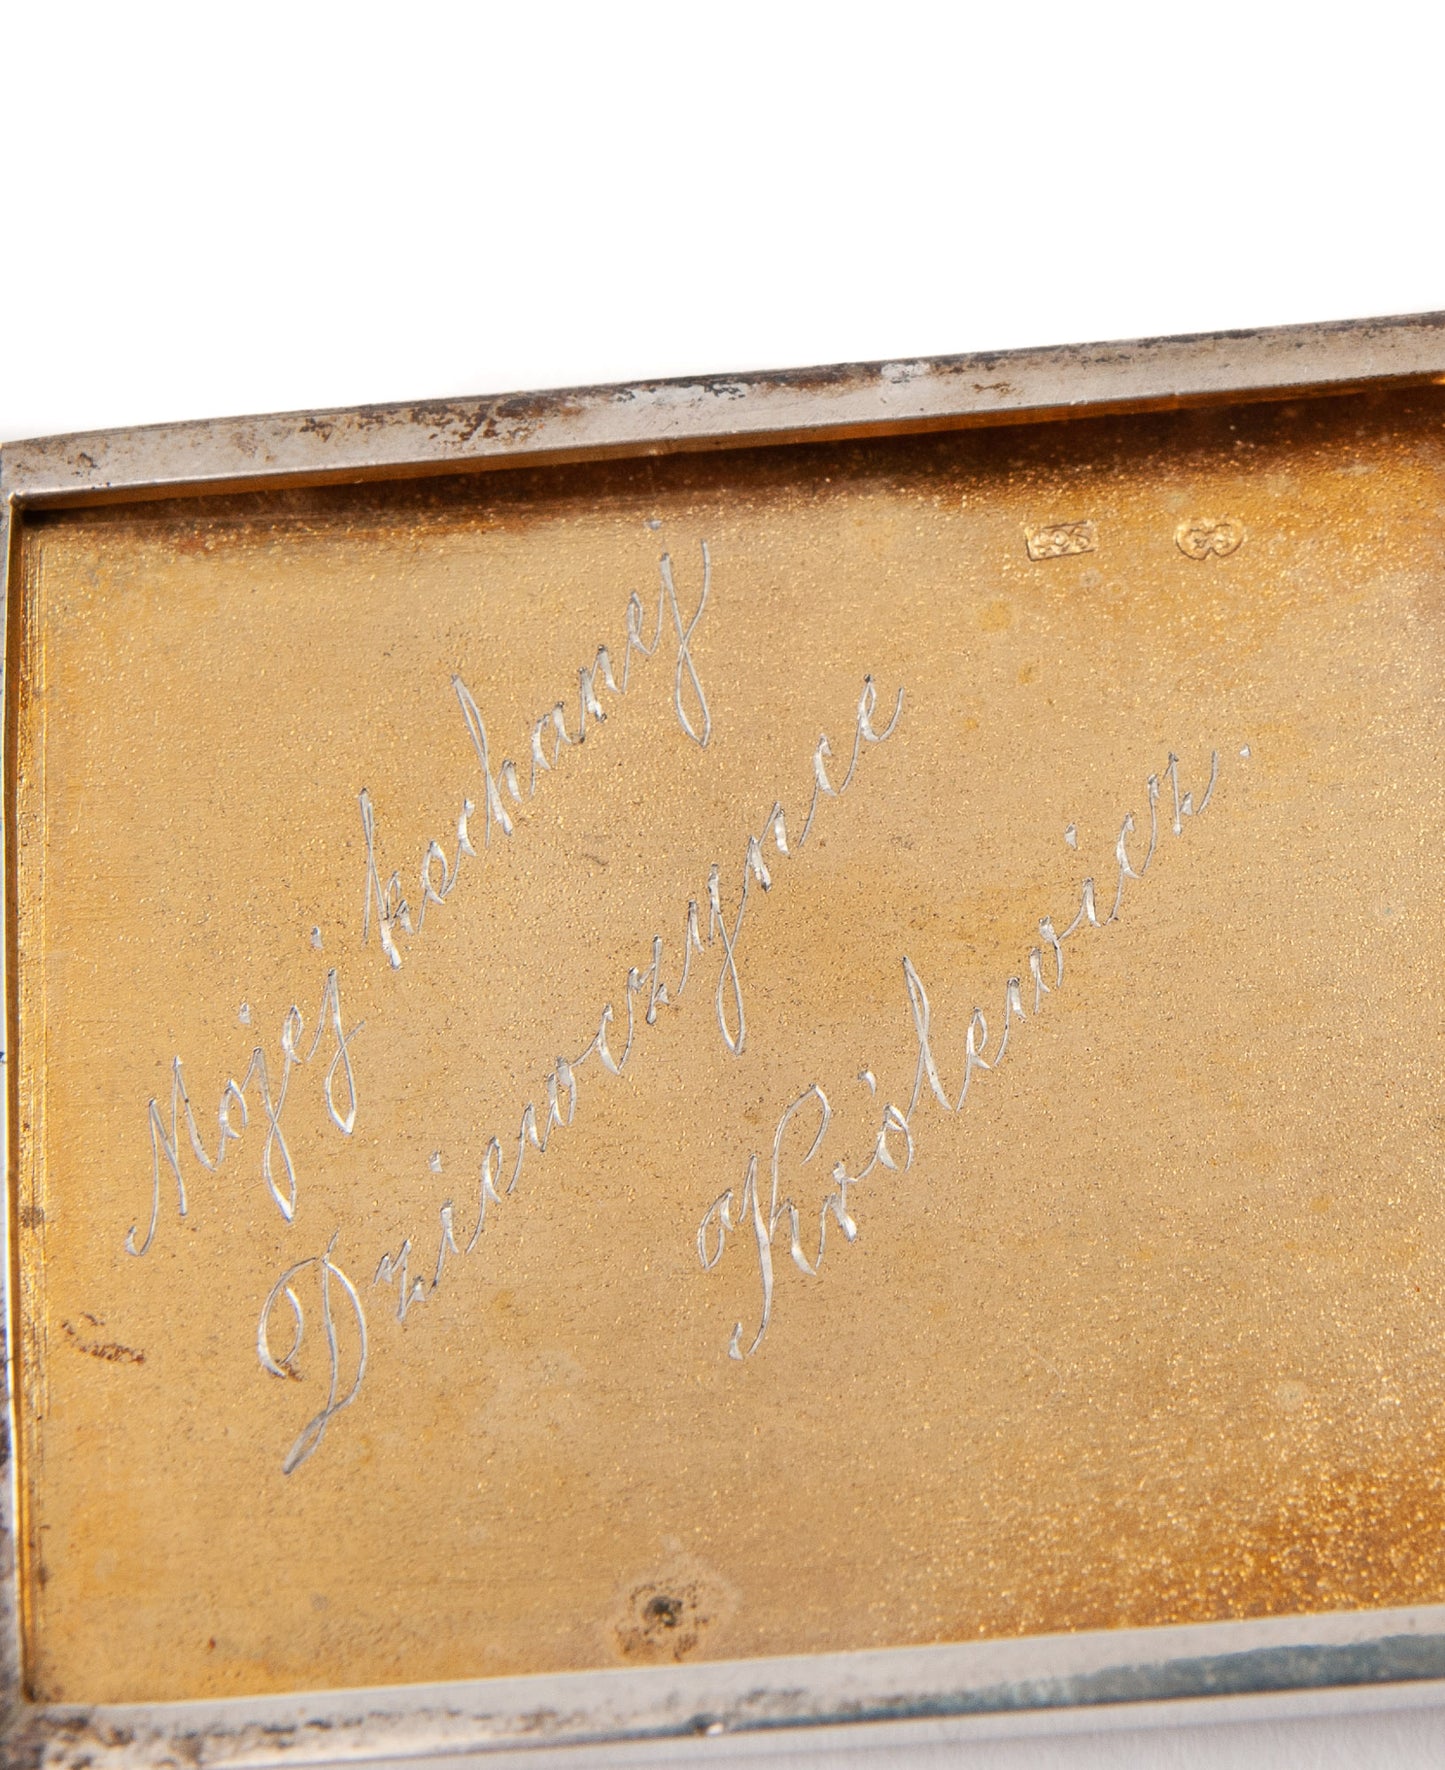 Mojej kochanej
Dziewoczynce
Królewicz.